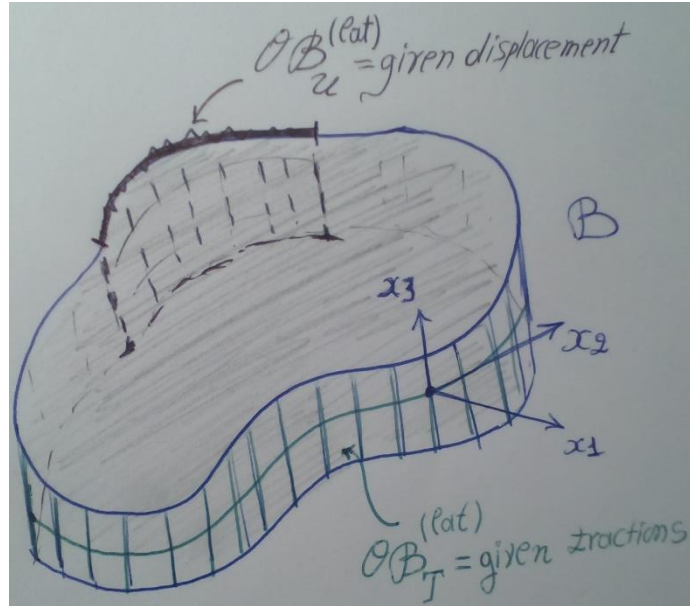 ∂B_u^(lat) = given displacement
B
x3
x2
x1
∂B_T^(lat) = given tractions